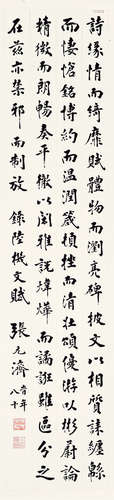 詩緣情而綺靡賦體物而瀏亮碑披文以相質誄纏緜
而悽愴銘博約而溫潤箴頓挫而清壯頌優游以彬蔚論
精微而朗暢奏平徹以閑雅說煒燁而譎誑雖區分之
在茲亦禁邪而制放 錄陸機文賦 張元濟
旹年
八十